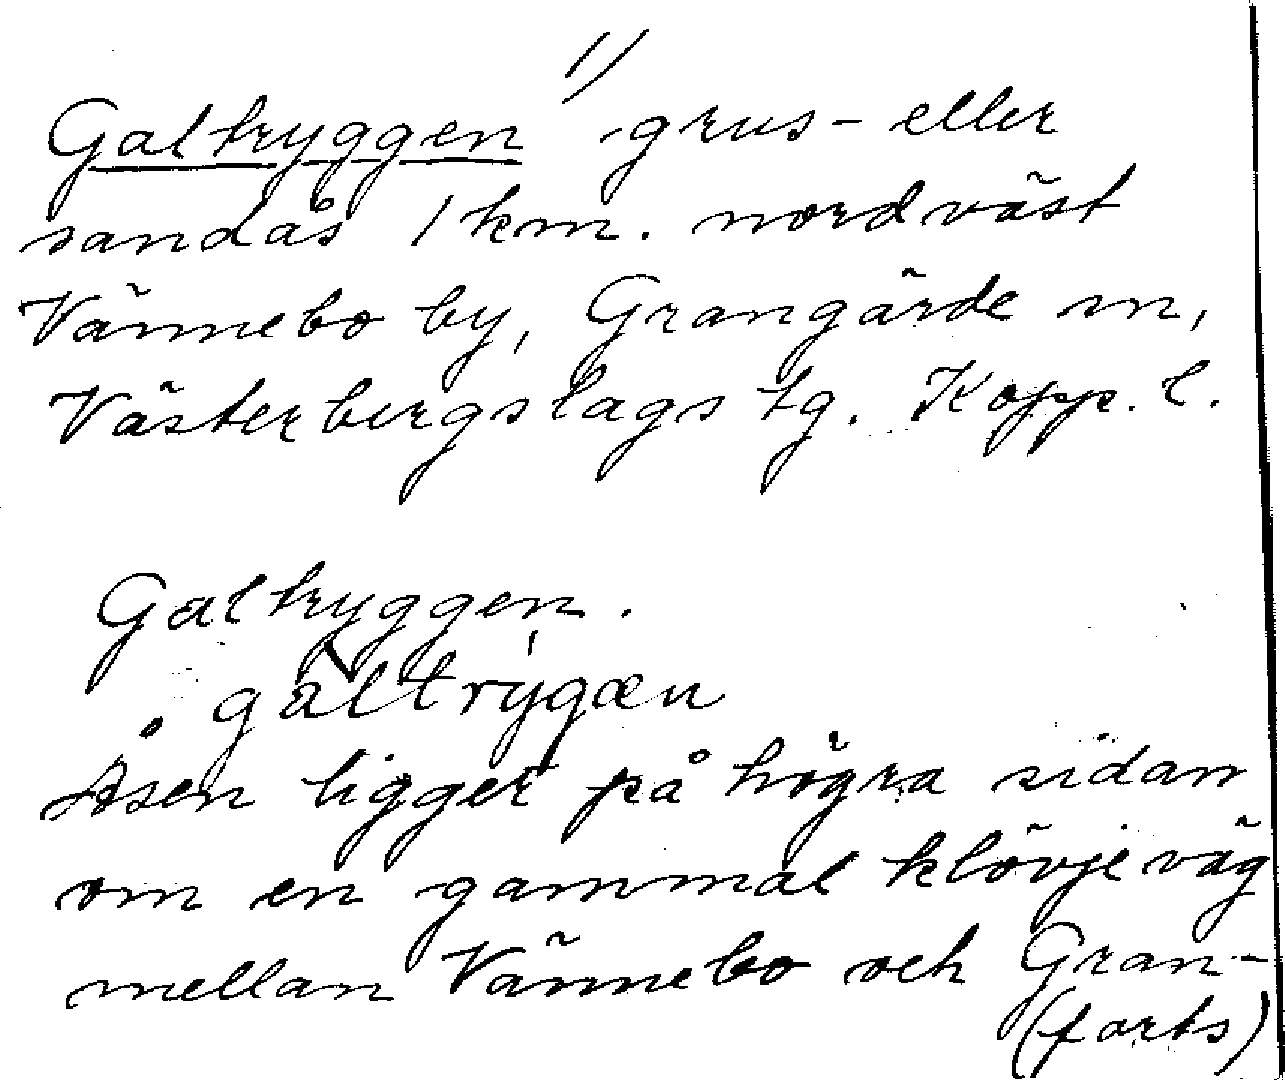 1)
Galtryggen grus- eller
sandås 1 km. nordväst
Vännebo by, Grangärde sn,
Västerbergslags tg. Kopp. l.
Galtryggen.
gàltrýgæn
Åsen ligger på högra sidan
om en gammal klövjeväg
mellan Vännebo och Gran-
(forts)